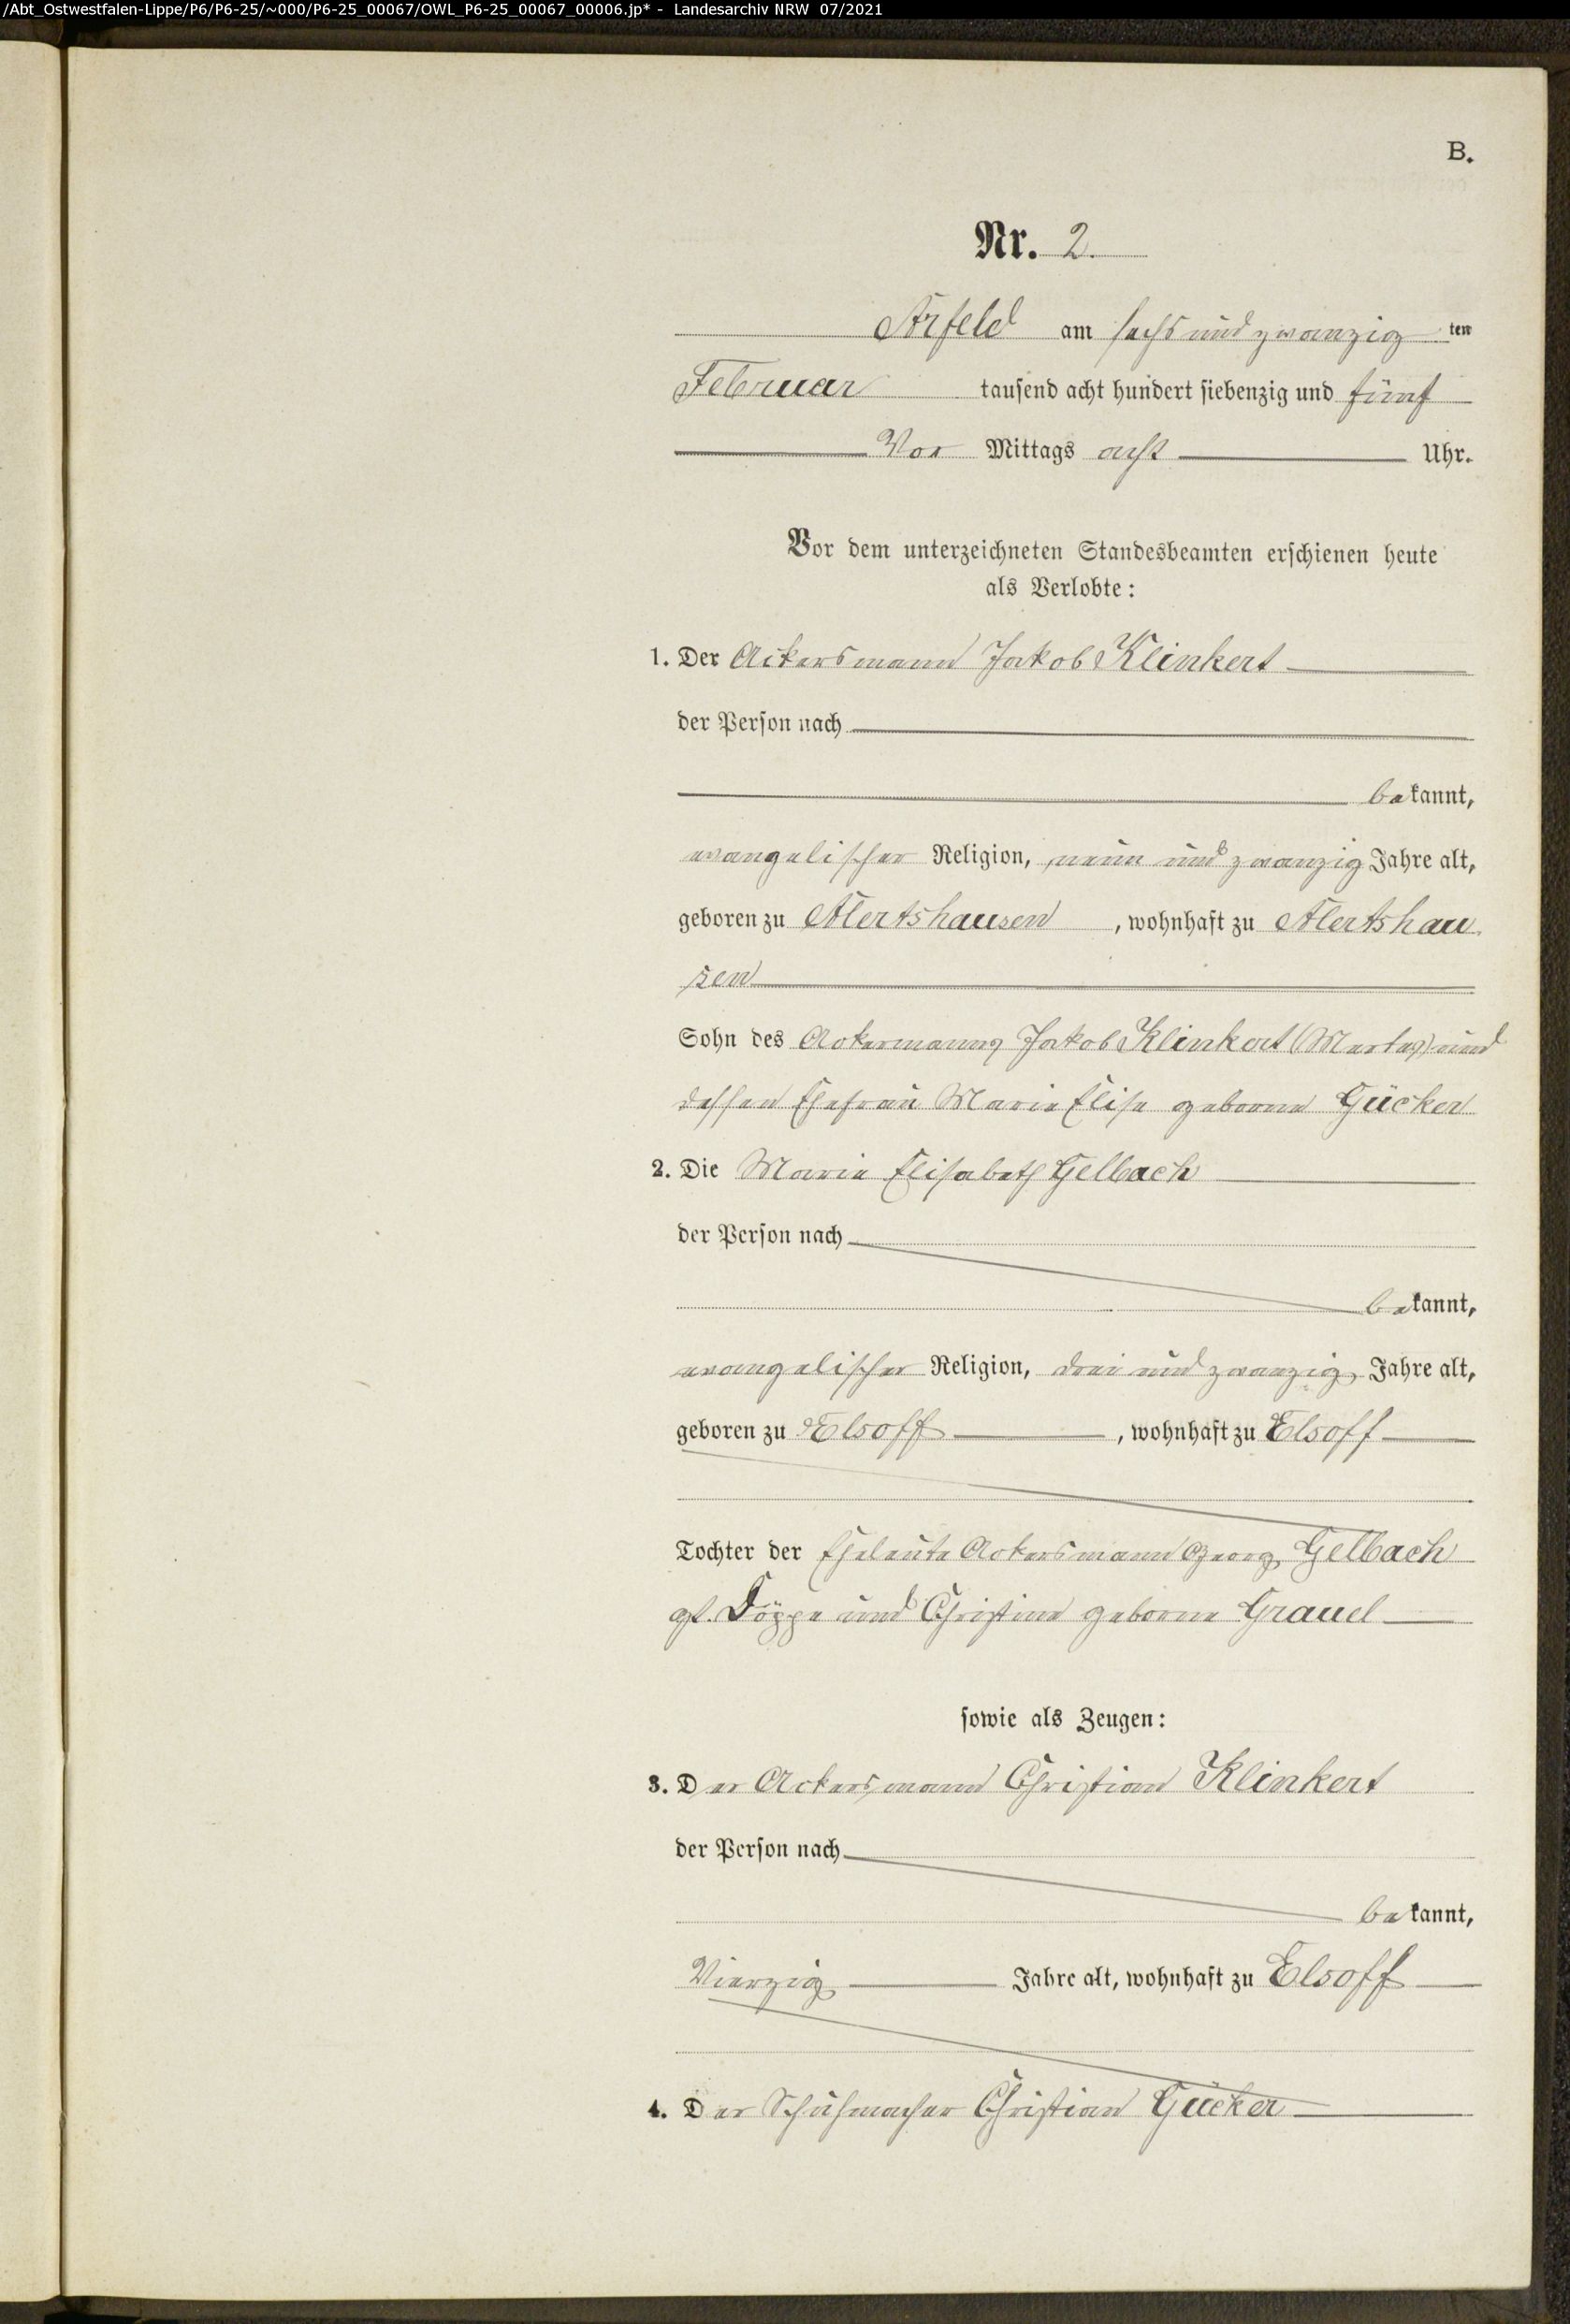 /Abt_Ostwestfalen-Lippe/P6/P6-25/~000/P6-25_00067/OWL_P6-25_00067_00006.jp* - Landesarchiv NRW 07/2021
B.
Nr. 2.
Arfeld am sechs und zwanzig ten
Februar tausend acht hundert siebenzig und fünf
Vor Mittags acht Uhr.
Vor dem unterzeichneten Standesbeamten erschienen heute
als Verlobte:
1. Der Ackersmann Jakob Klinkert
der Person nach
bekannt,
evangelischer Religion, neun und zwanzig Jahre alt,
geboren zu Alertshausen, wohnhaft zu Alertshau
sen
Sohn des Ackermanns Jakob Klinkert (Mertes) und
dessen Ehefrau Marie Elise geborne Gücker
2. Die Marie Elisabeth Gelbach
der Person nach
bekannt,
evangelischer Religion, drei und zwanzig Jahre alt,
geboren zu Elsoff, wohnhaft zu Elsoff
Tochter der Eheleute Ackersmann Georg Gelbach
gt. Döppe und Christine geborne Grauel
sowie als Zeugen:
3. Der Ackersmann Christian Klinkert
der Person nach
bekannt,
Vierzig Jahre alt, wohnhaft zu Elsoff
4. Der Schuhmacher Christian Gücker